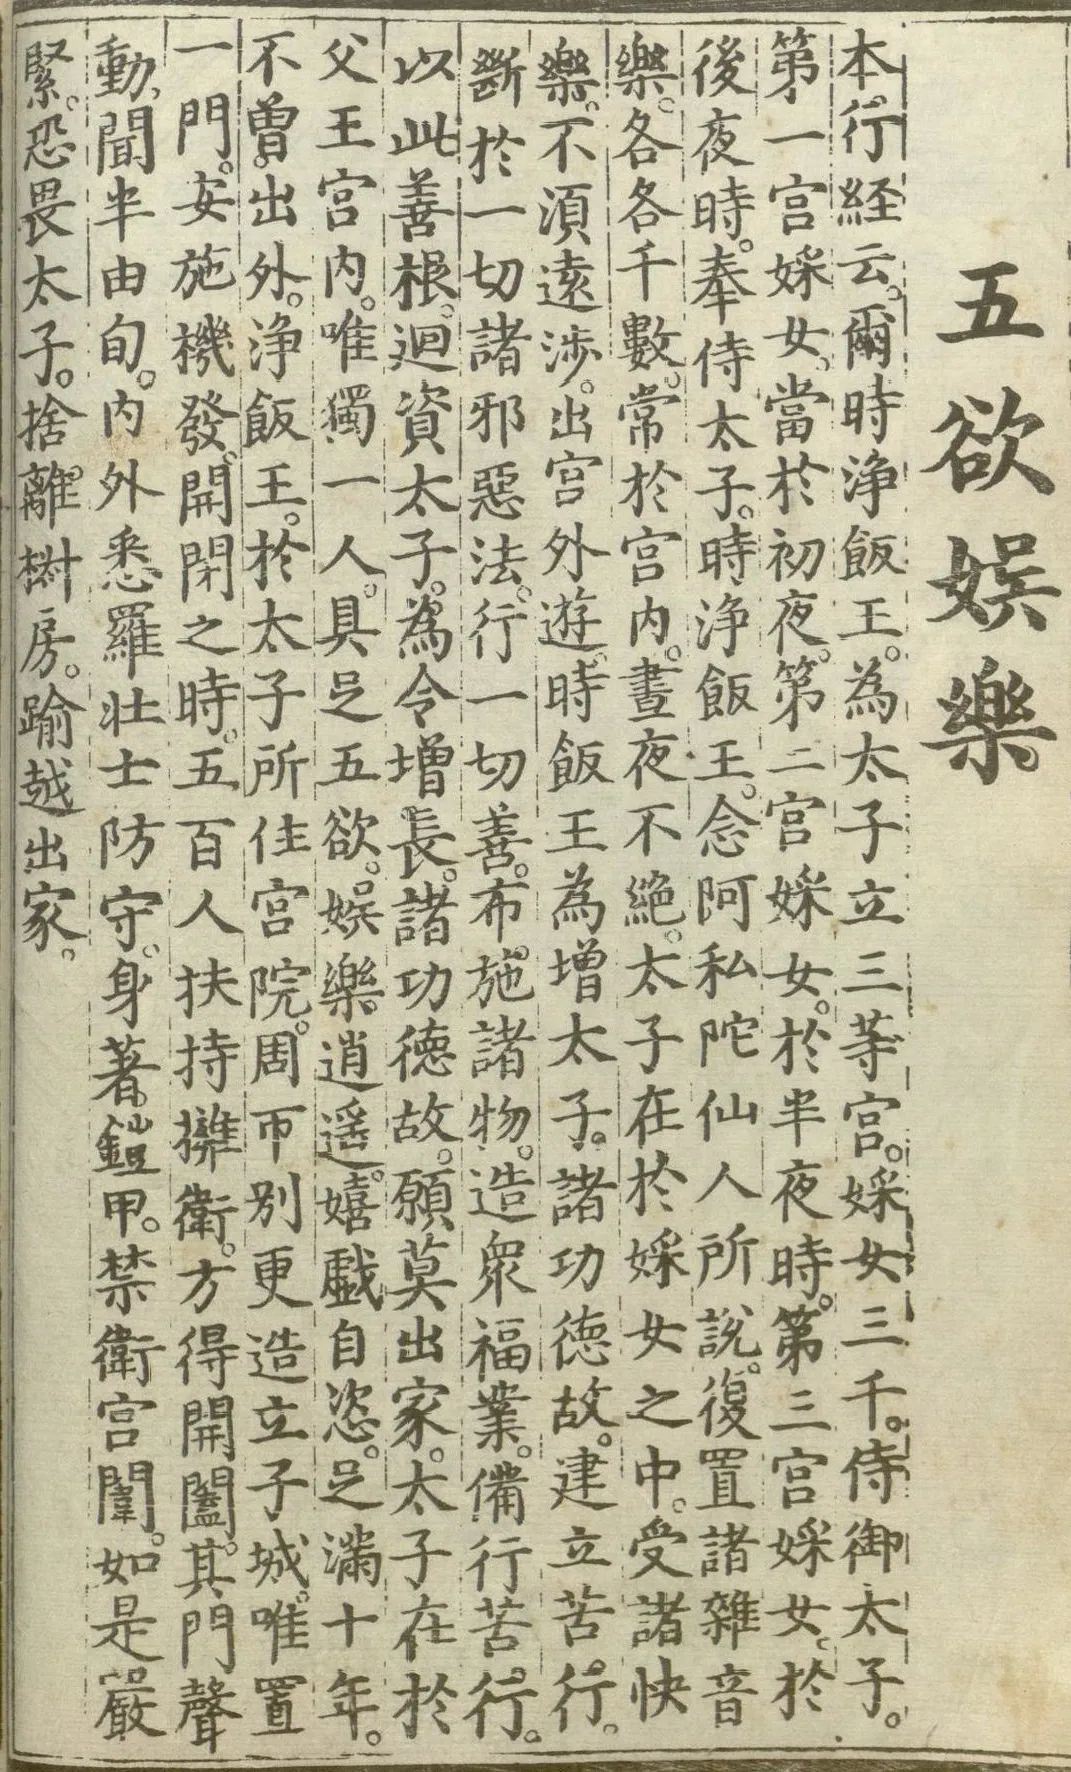 五欲娛樂
本行経云。爾時浄飯王。為太子立三等宮。婇女三千。侍御太子。
第一宮婇女。當於初夜。第二宮婇女。於半夜時。第三宮婇女。於
後夜時。奉侍太子。時浄飯王。念阿私陀仙人所說。復置諸雜音
樂。各各千數。常於宮内。晝夜不絶。太子在於婇女之中。受諸快
樂。不湏遠渉。出宮外遊。時飯王為增太子。諸功徳故。建立苦行。
斷於一切諸邪惡法。行一切善。布施諸物。造衆福業。備行苦行。
以此善根。迴資太子。為令增長。諸功徳故。願莫出家。太子在於
父王宮内。唯獨一人。具足五欲。娛樂。逍遥。嬉戲自恣。足滿十年。
不曽。出外。浄飯王。於太子所住宮院。周帀别更造立子城。唯置
一門。安施機發。開閉之時。五百人扶持擁衛。方得開闔。其門聲
動。聞半由旬。内外悉羅壯士防守。身著鎧甲。禁衛宮闈。如是嚴
緊。恐畏太子。捨離樹房。踰越出家。